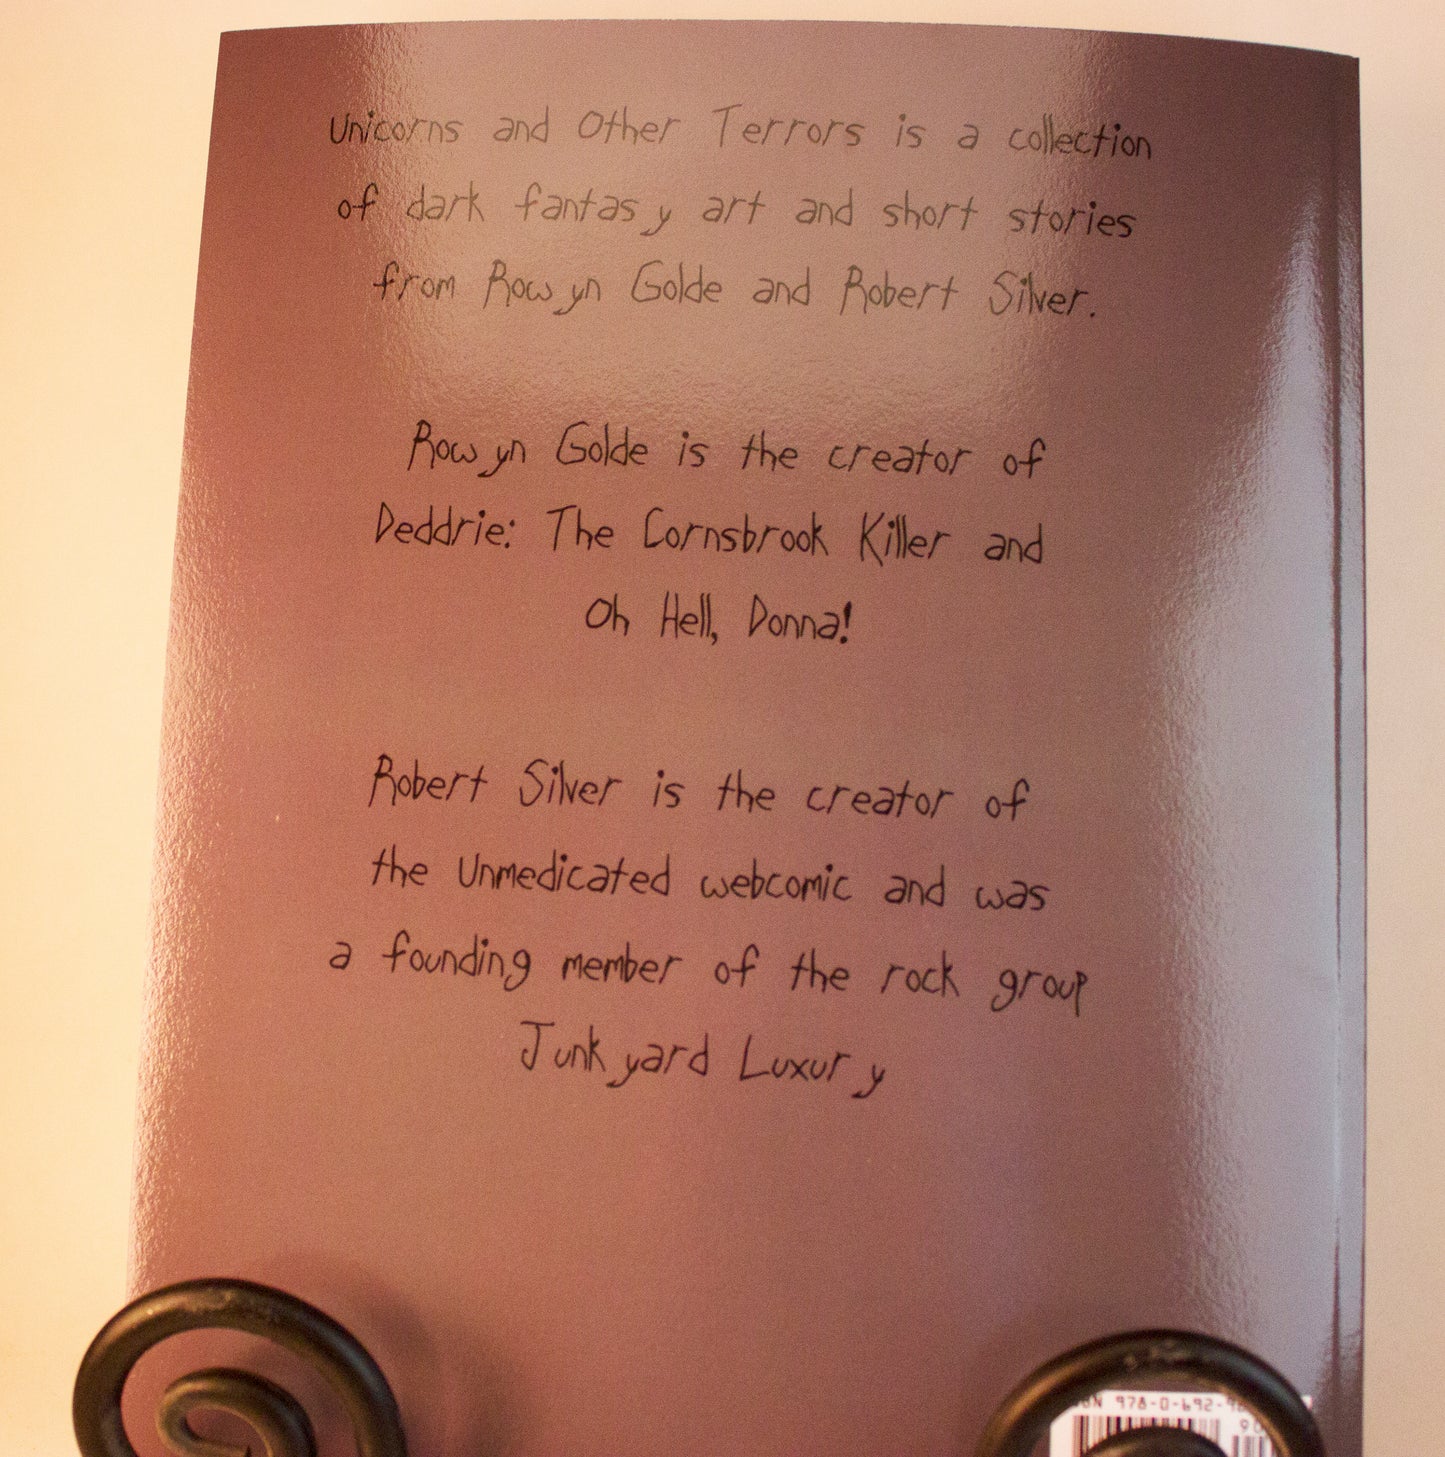 Unicorns and Other Terrors is a collection
of dark fantasy art and short stories
from Rowyn Golde and Robert Silver.
Rowyn Golde is the creator of
Deddrie: The Cornsbrook Killer and
Oh Hell, Donna!
Robert Silver is the creator of
the Unmedicated webcomic and was
a founding member of the rock group
Junkyard Luxury
978-0-692-9
90